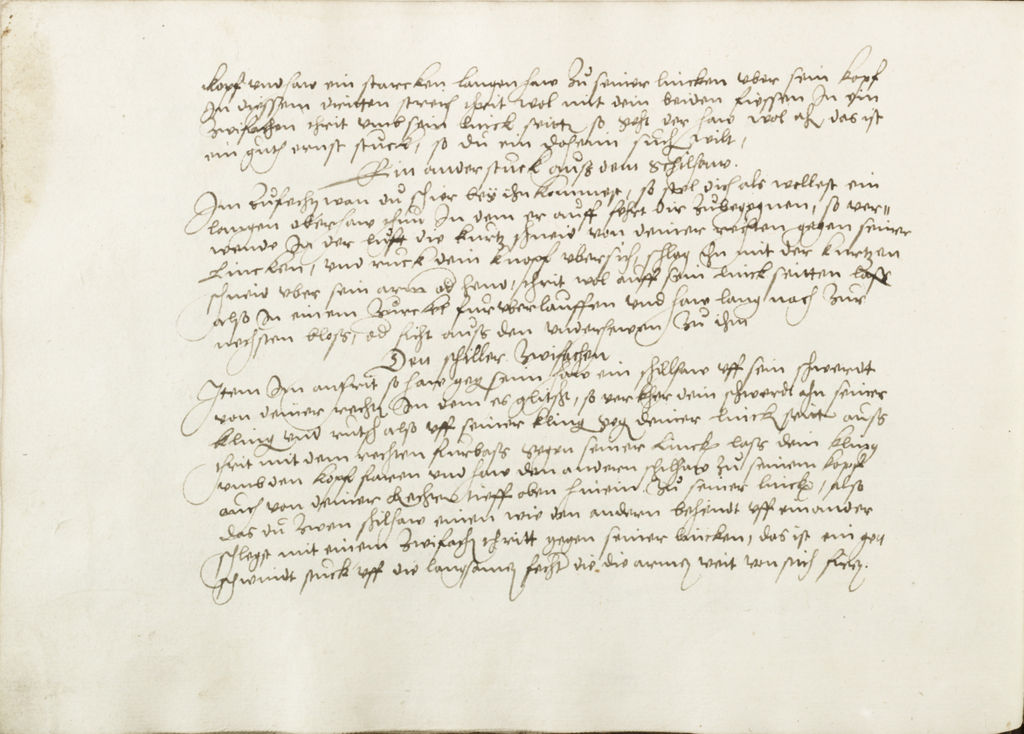 kopf vnd haw ein starcken langen haw zu seiner lincken vber sein kopf
In dissem dritten streich thrit wol mit dein beiden fiessen In ein
zwifachen thrit vmb sein linck seitte so geht der haw wol ahn das ist
ein guth ernst stuck, so du ein daheim such wilt,
Ein ander stuck auß dem Schilhaw.
Im zufechten wan du schier bey ihn kommest, so stel dich als wellest ein
langen oberhaw thun In dem er auff fehrt dir zubegegnen, so ver=
wende In der lufft die kurtz schneid von deiner rechten gegen seiner
Lincken, vnd ruck dein knopf vbersich, schlag In mit der kurtzen
schneid vber sein arm od hend, thrit wol auff sein linck seitten laß
also In einem zurckel furvberlauffen vnd haw lang nach zur
nechsten bloß, od ficht auß den vnderhewen zu ihm
Den schiller zwifachen
Item Im anfrit so haw geg seim haw ein schillhaw vff sein schwerdt
von deiner rechten In dem es glitscht, so verkher dein schwerdt ahn seiner
kling vnd rutsch also vff seiner kling geg deiner linck seite auß
thrit mit dem rechten furbaß gegen seiner Linck laß dein kling
vmb den kopf faren vnd haw den anderen schilhaw zu seinem kopf
auch von deiner Rechten tieff oben hinein zu seiner linck, also
das du zwen schilhaw einen wie den andern behendt vff einander
schlegst mit einem zwifach thritt gegen seiner lincken, das ist ein ge=
schwindt stuck vff die langsamen fecht die die armen weit von sich fieren.